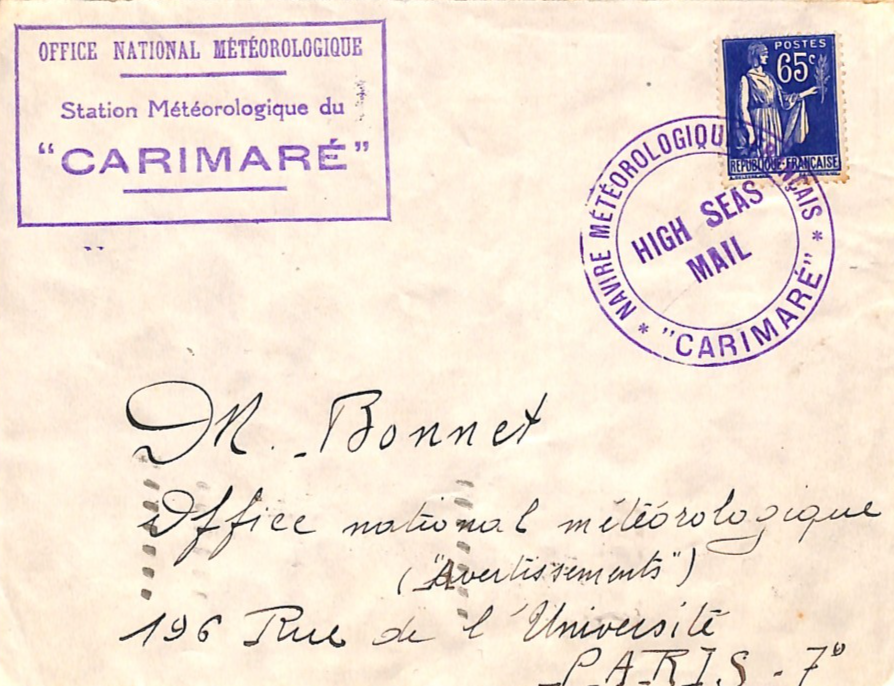 OFFICE NATIONAL MÉTÉOROLOGIQUE
Station Météorologique du
"CARIMARÉ"
POSTES
65c
REPUBLIQUE FRANÇAISE
NAVIRE MÉTÉOROLOGIQUE FRANÇAIS
* "CARIMARÉ" *
HIGH SEAS
MAIL
M. Bonnet
Office national météorologique
("Avertissements")
196 Rue de l'Université
PARIS - 7e